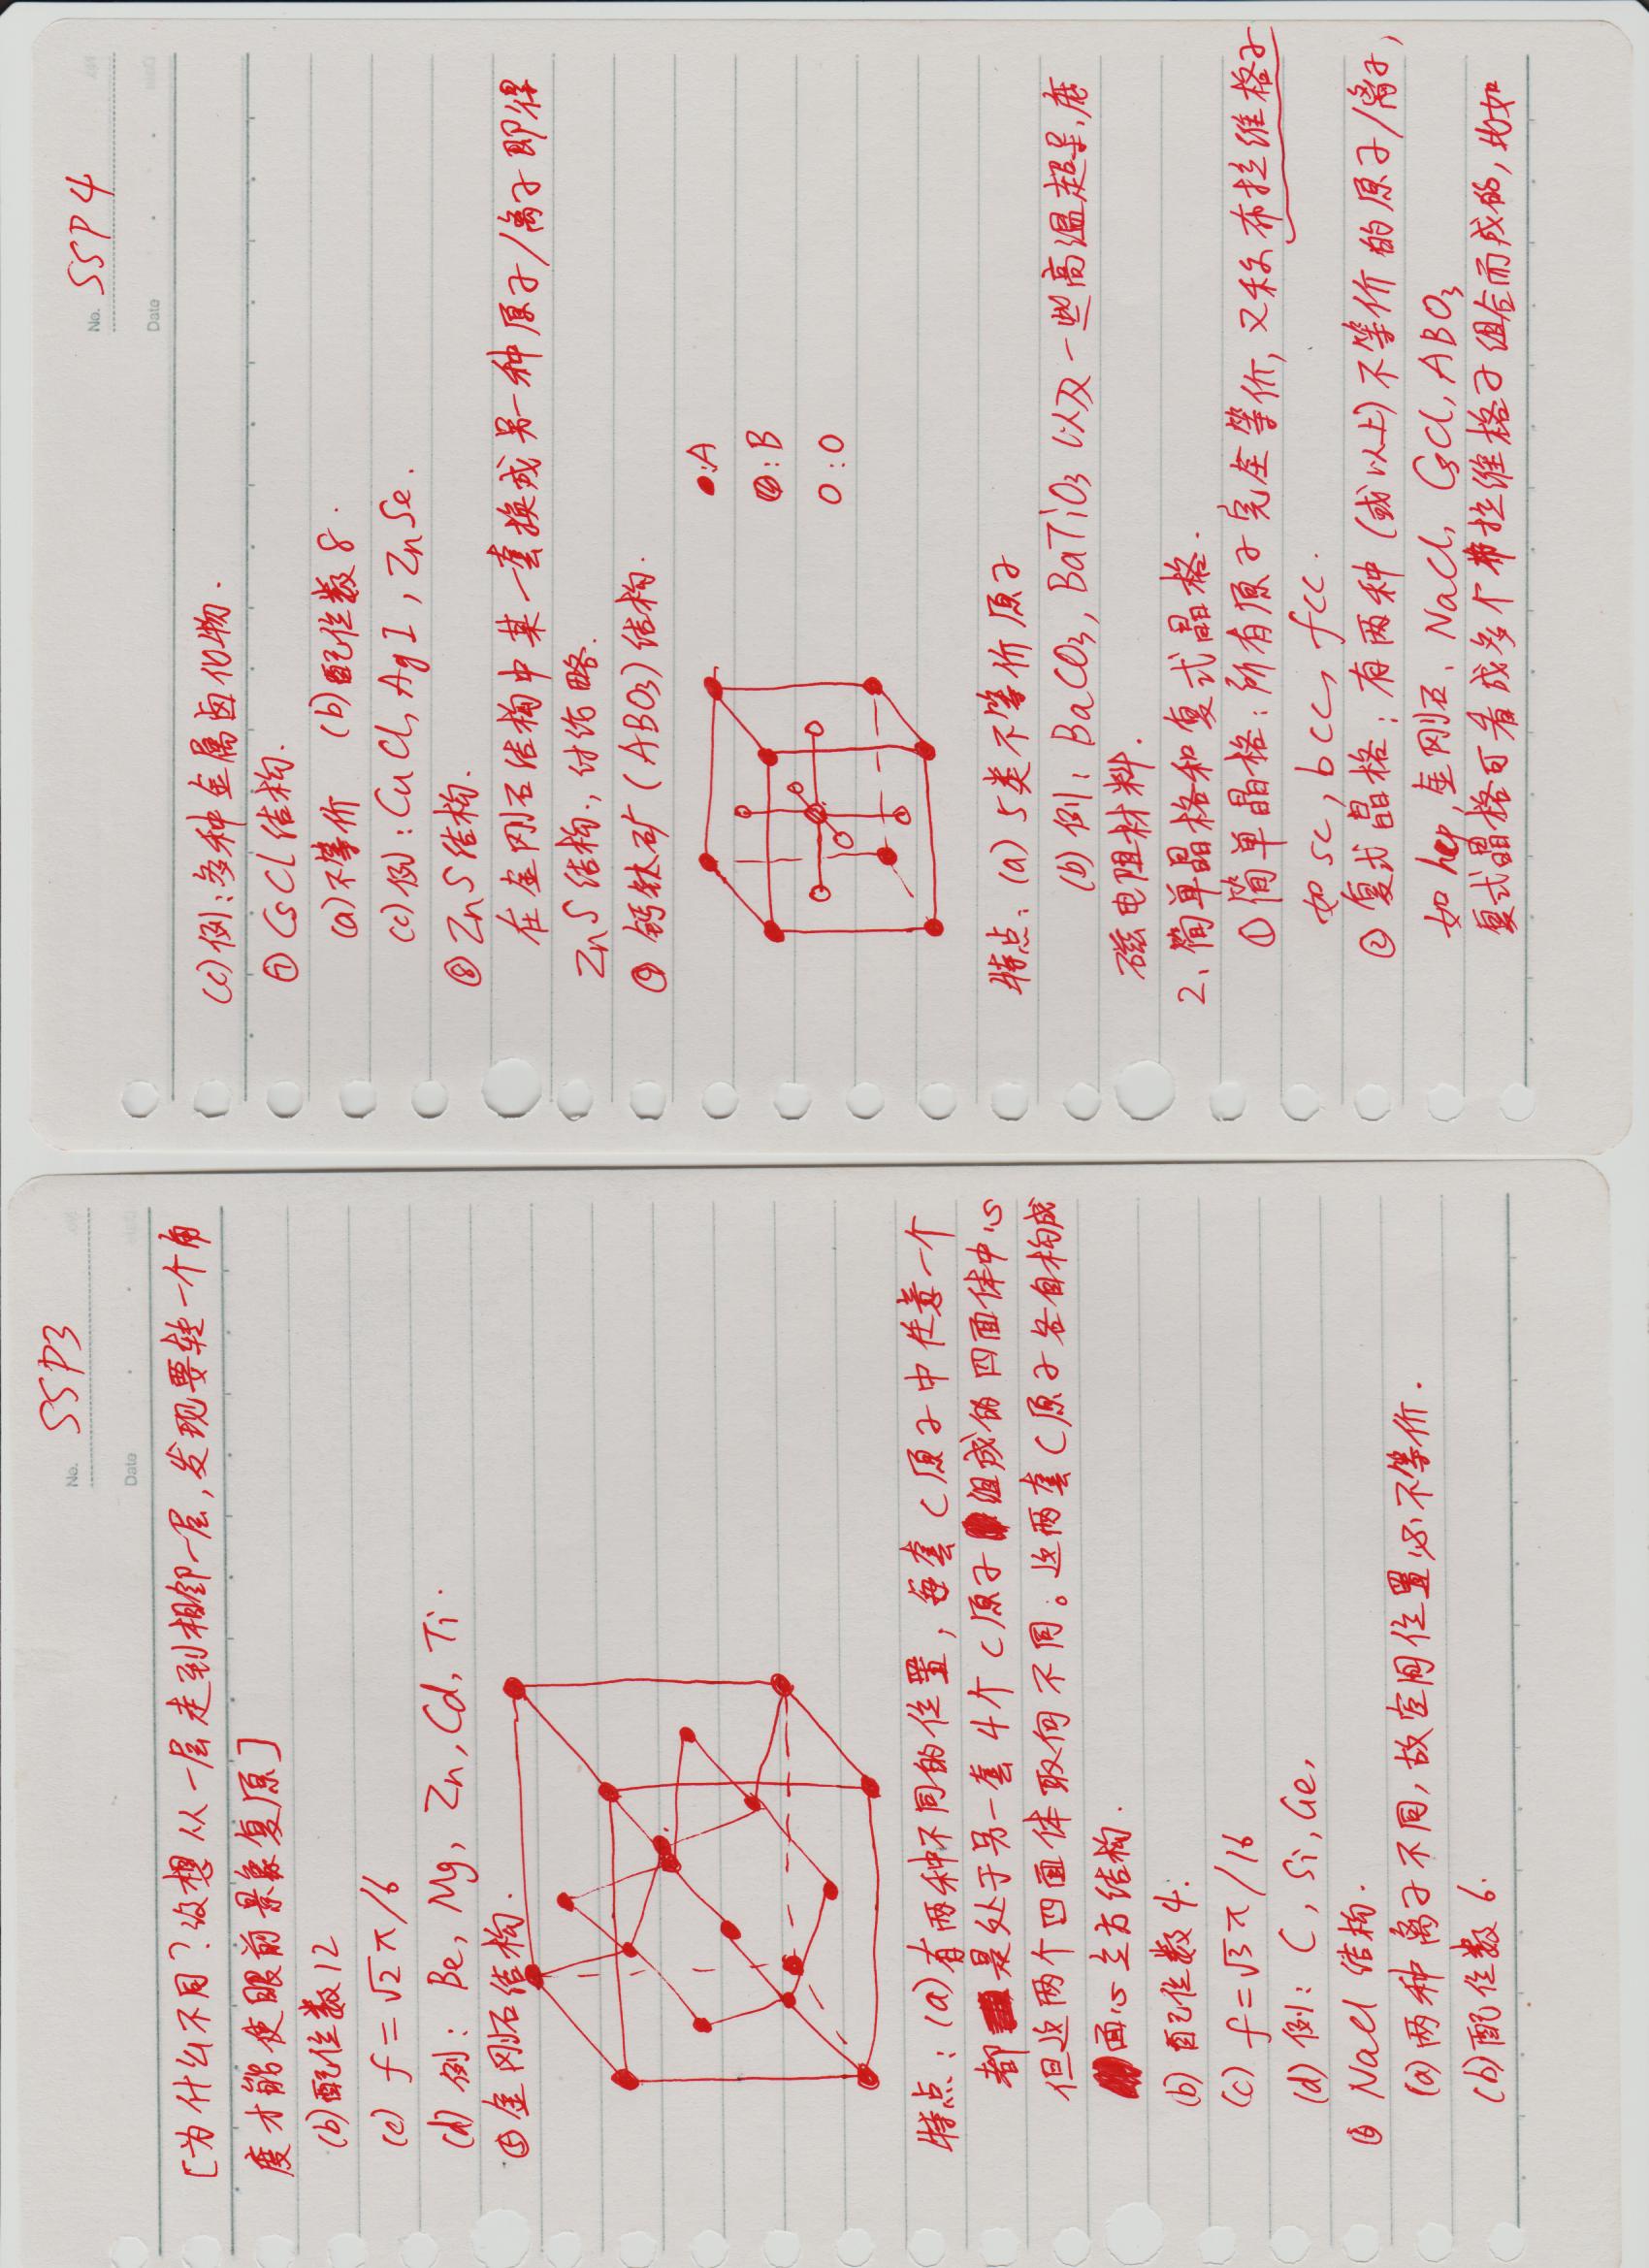 No. SSP3
Date
[为什么不同?设想从一层走到相邻一层,发现要转一个角
度才能使眼前景象复原]
(b)配位数12
(c) f=√2π/6
(d) 例: Be, Mg, Zn, Cd, Ti.
⑤金刚石结构.
特点: (a)有两种不同的位置, 每套C原子中任意一个
都是处于另一套4个C原子组成的四面体中心
但这两个四面体取向不同。这两套C原子各自构成
面心立方结构.
(b) 配位数4.
(c) f=√3π/16
(d) 例: C, Si, Ge,
⑥ NaCl 结构.
(a)两种离子不同,故空间位置必不等价.
(b)配位数6.
No. SSP4
Date
(c)例:多种金属卤化物.
⑦ CsCl结构.
(a)不等价 (b)配位数8.
(c)例: CuCl, AgI, ZnSe.
⑧ ZnS结构.
在金刚石结构中某一套换成另一种原子/离子即得
ZnS结构., 讨论略.
⑨ 钙钛矿(ABO₃)结构.
:A
:B
O:O
特点: (a) 5类不等价原子
(b) 例: BaCO₃, BaTiO₃ 以及一些高温超导,庞
磁电阻材料.
2. 简单晶格和复式晶格.
①简单晶格: 所有原子完全等价, 又称布拉维格子
如 sc, bcc, fcc.
②复式晶格: 有两种(或以上)不等价的原子/离子,
如hcp, 金刚石、NaCl, CsCl, ABO₃
复式晶格可看成多个布拉维格子组合而成的, 比如